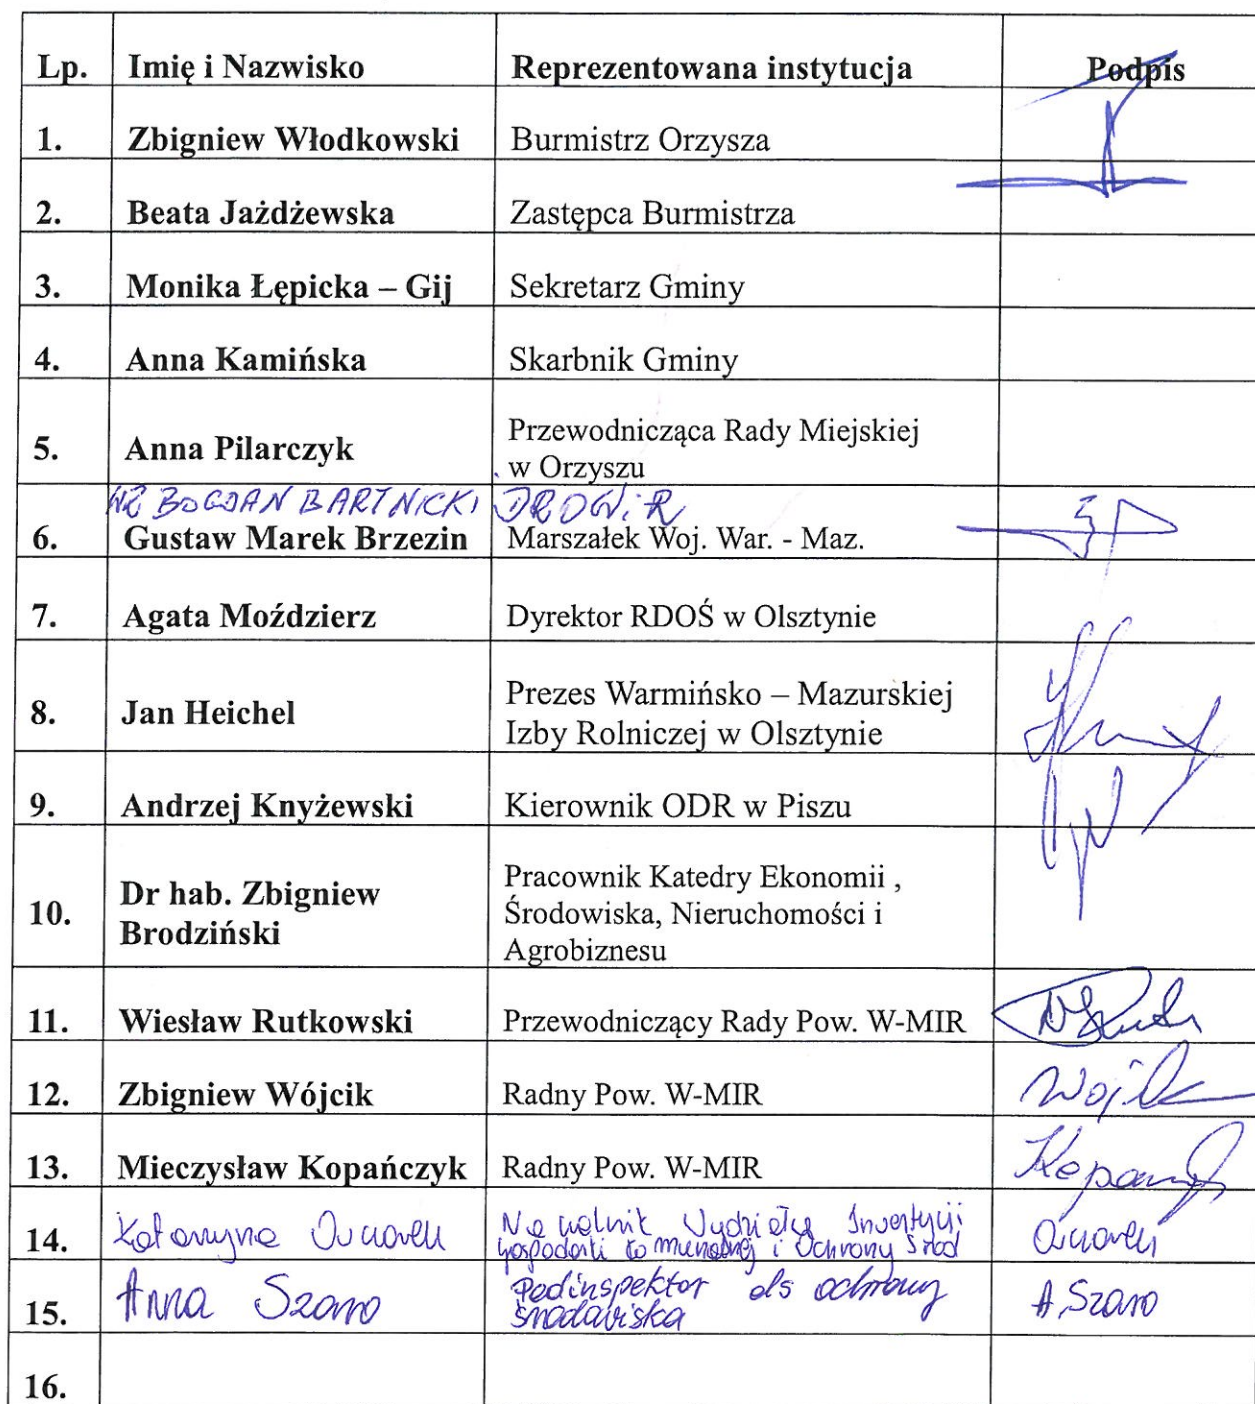 Lp. Imię i Nazwisko Reprezentowana instytucja Podpis
1. Zbigniew Włodkowski Burmistrz Orzysza
2. Beata Jażdżewska Zastępca Burmistrza
3. Monika Łępicka – Gij Sekretarz Gminy
4. Anna Kamińska Skarbnik Gminy
5. Anna Pilarczyk Przewodnicząca Rady Miejskiej
w Orzyszu
WZ BOGDAN BARTNICKI
6. Gustaw Marek Brzezin Marszałek Woj. War. - Maz.
7. Agata Moździerz Dyrektor RDOŚ w Olsztynie
8. Jan Heichel Prezes Warmińsko – Mazurskiej
Izby Rolniczej w Olsztynie
9. Andrzej Knyżewski Kierownik ODR w Piszu
10. Dr hab. Zbigniew
Brodziński
Pracownik Katedry Ekonomii ,
Środowiska, Nieruchomości i
Agrobiznesu
11. Wiesław Rutkowski Przewodniczący Rady Pow. W-MIR
12. Zbigniew Wójcik Radny Pow. W-MIR
13. Mieczysław Kopańczyk Radny Pow. W-MIR
14. Katarzyna Naczelnik Wydziału Inwestycji
gospodarki komunalnej i Ochrony Środ
15. Anna Szaro Podinspektor ds ochrony A.Szaro
środowiska
16.